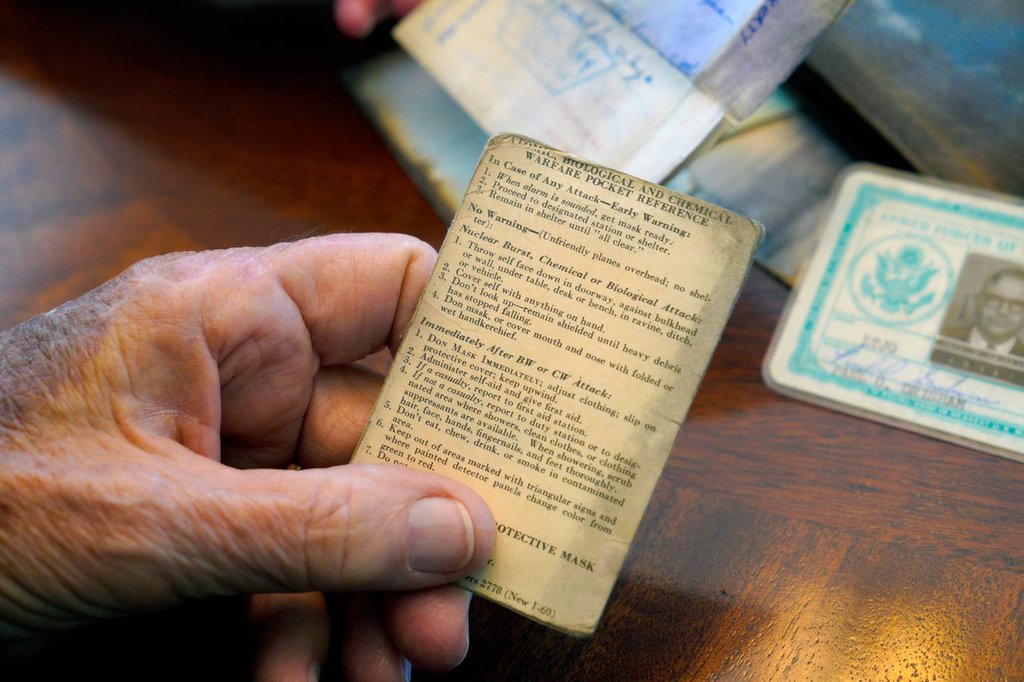 ATOMIC, BIOLOGICAL AND CHEMICAL
WARFARE POCKET REFERENCE
In Case of Any Attack—Early Warning:
1. When alarm is sounded, get mask ready.
2. Proceed to designated station or shelter.
3. Remain in shelter until "all clear."
No Warning—(Unfriendly planes overhead; no shel-
ter):
Nuclear Burst, Chemical or Biological Attack:
1. Throw self face down in doorway, against bulkhead
or wall, under table, desk or bench, in ravine, ditch,
or vehicle.
2. Cover self with anything on hand.
3. Don't look up—remain shielded until heavy debris
has stopped falling.
4. Don mask, or cover mouth and nose with folded or
wet handkerchief.
Immediately After BW or CW Attack:
1. DON MASK IMMEDIATELY; adjust clothing; slip on
protective cover; keep upwind.
2. Administer self-aid and give first aid.
3. If a casualty, report to first aid station.
4. If not a casualty, report to duty station, or to desig-
nated area where showers, clean clothes, or clothing
suppressants are available. When showering, scrub
hair, face, hands, fingernails, and feet thoroughly.
5. Don't eat, chew, drink, or smoke in contaminated
area.
6. Keep out of areas marked with triangular signs and
where painted detector panels change color from
green to red.
7. Do no
OTECTIVE MASK
r.
ers 2778 (New 1-60)
FORCES OF